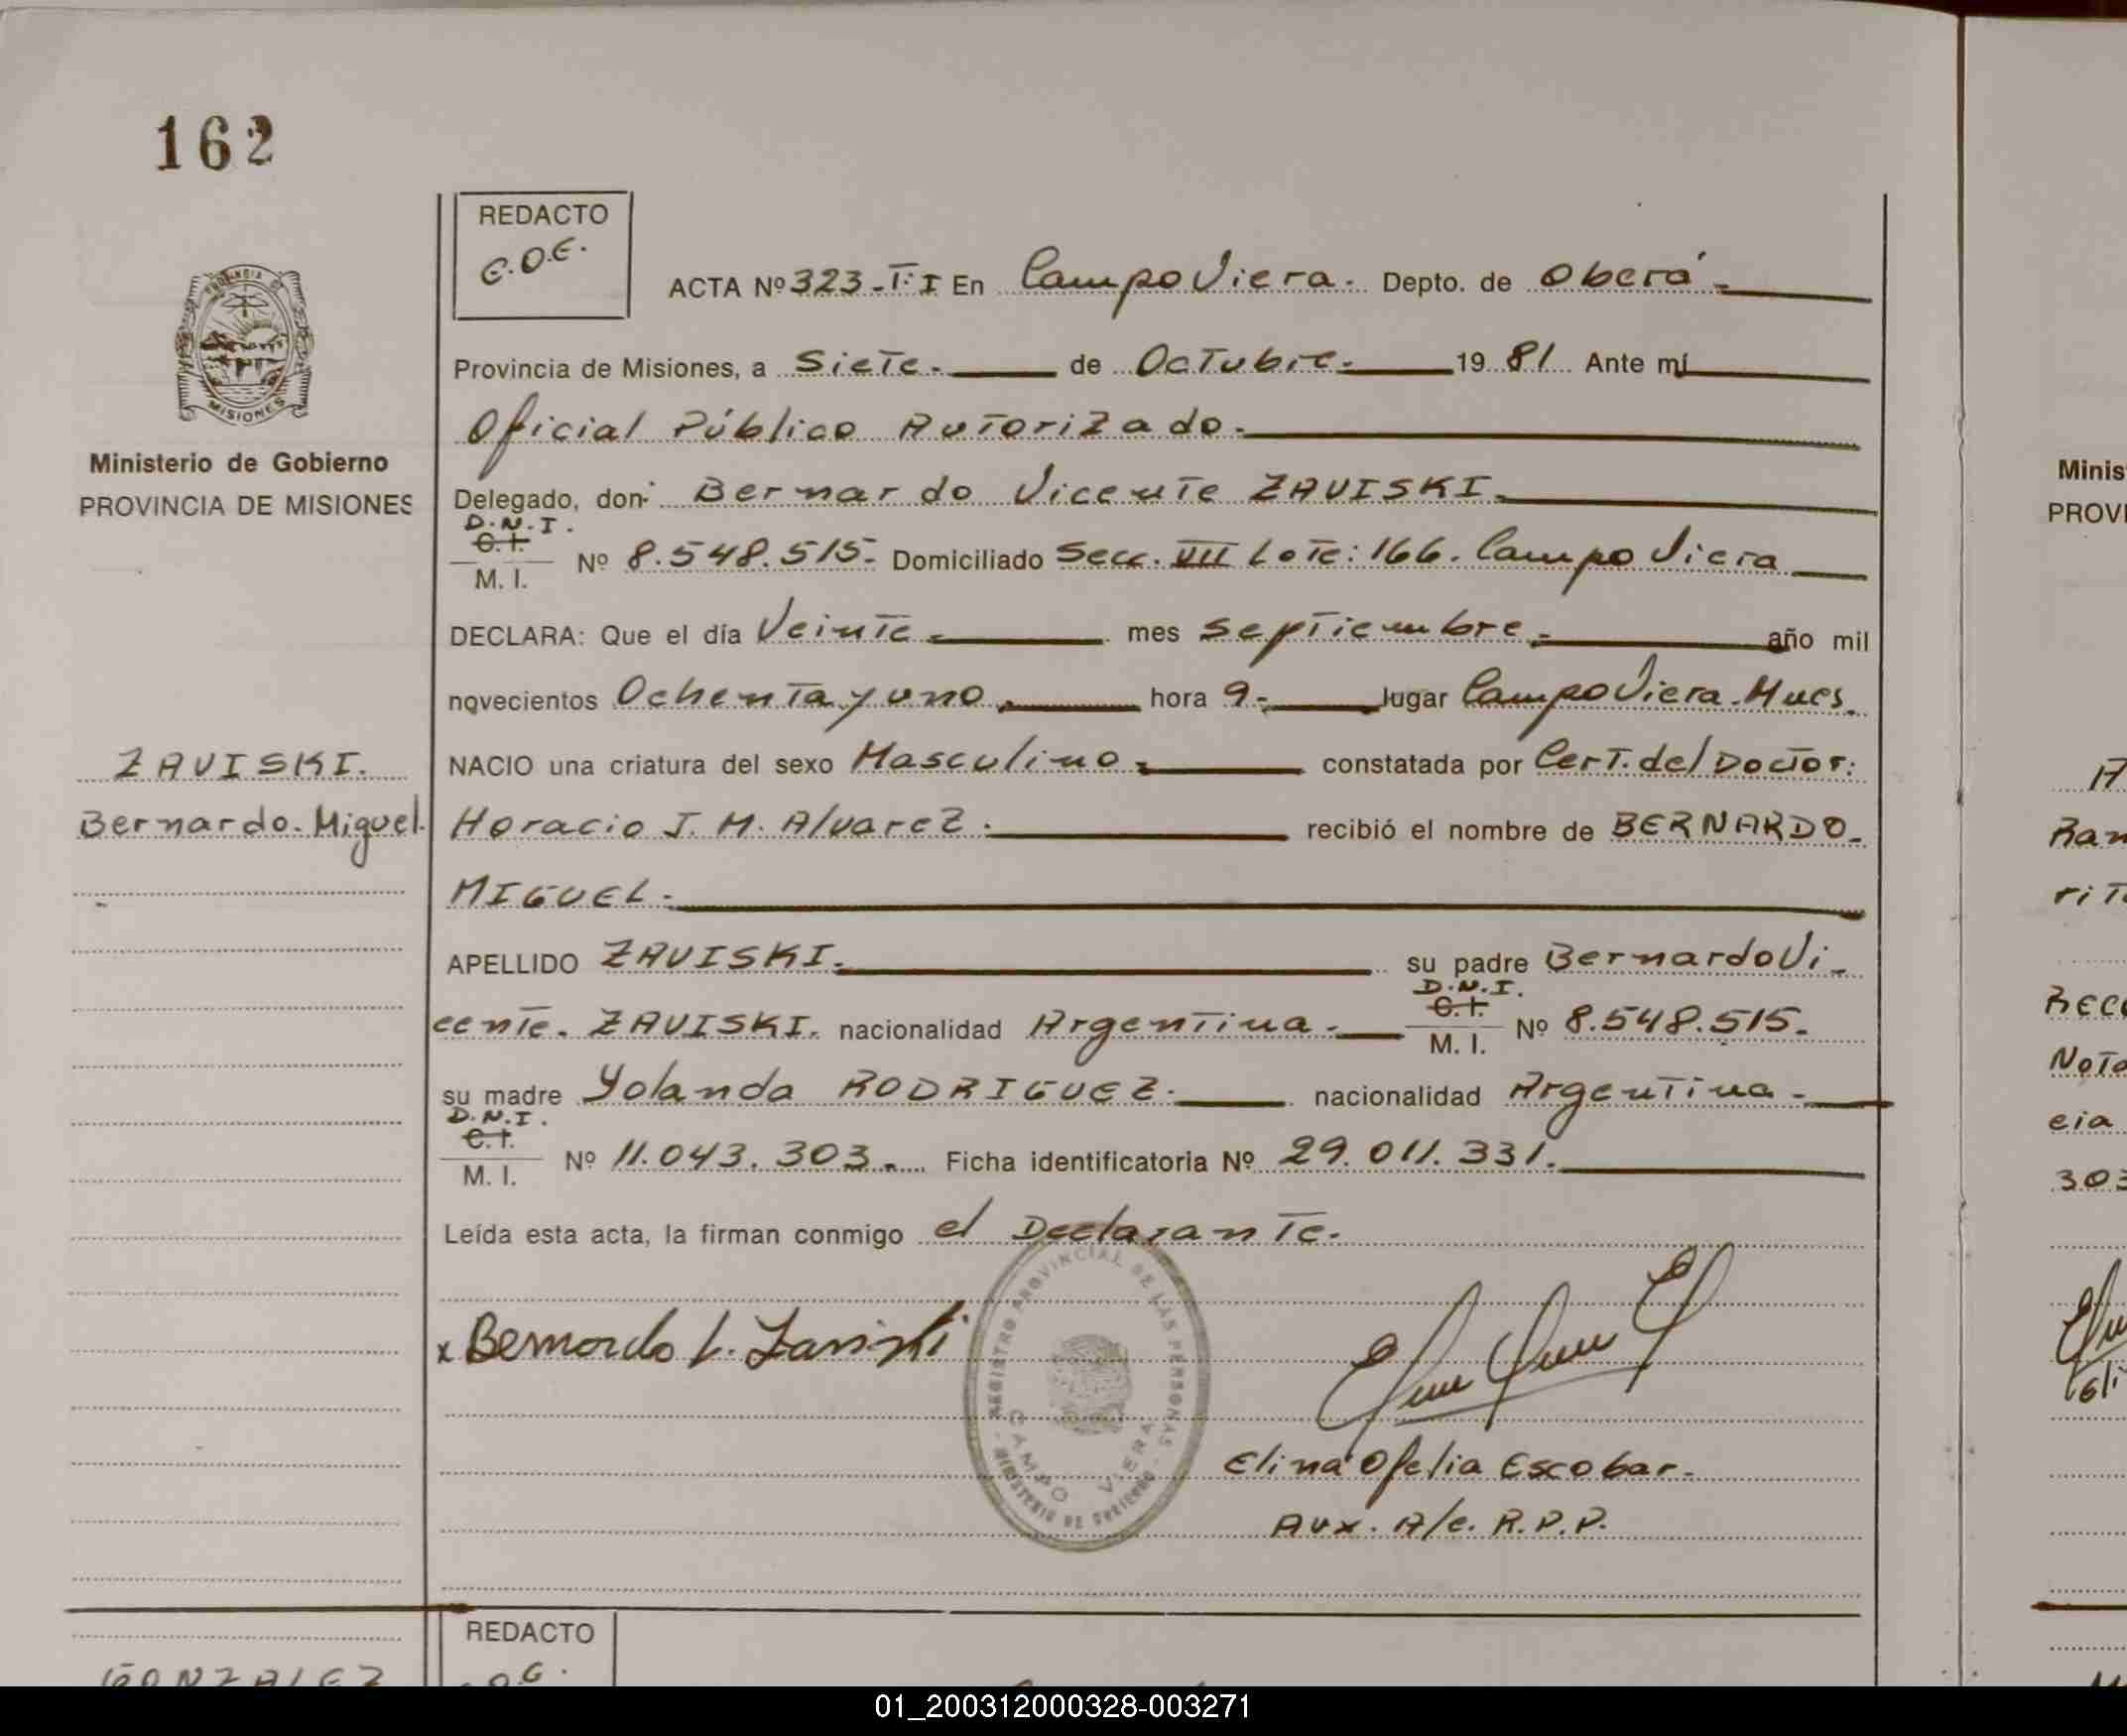 162
REDACTO
E.O.E.
ACTA Nº 323-T: I En Campo Viera. Depto. de Oberá.
Provincia de Misiones, a Siete. de Octubre. 19 81 Ante mí
Oficial Público Autorizado.
Ministerio de Gobierno
PROVINCIA DE MISIONES
PROVINCIA
MISIONES
Delegado, don Bernardo Vicente ZAVISKI.
D.N.I.
C.I.
M. I. Nº 8.548.515. Domiciliado Secc. VII Lote: 166. Campo Viera
DECLARA: Que el día Veinte. mes septiembre. año mil
novecientos Ochenta y uno. hora 9. lugar Campo Viera. Mnes.
ZAVISKI.
Bernardo. Miguel.
NACIO una criatura del sexo Masculino. constatada por Cert. del Doctor:
Horacio J. M. Alvarez. recibió el nombre de BERNARDO.
MIGUEL.
APELLIDO ZAVISKI. su padre Bernardo Vi
cente. ZAVISKI. nacionalidad Argentina. D.N.I.
C.I.
M. I. Nº 8.548.515.
su madre Yolanda RODRIGUEZ. nacionalidad Argentina.
D.N.I.
C.I.
M. I. Nº 11.043.303. Ficha identificatoria Nº 29.011.331.
Leída esta acta, la firman conmigo el Declarante.
x Bernardo V. Zaviski
REGISTRO PROVINCIAL DE LAS PERSONAS
CAMPO VIERA
MINISTERIO DE GOBIERNO
Elina Ofelia Escobar.
Aux. A/c. R.P.P.
REDACTO
GONZALEZ
Minis
PROVI
Ran
rit
Reco
Nota
cia
303
01_200312000328-003271